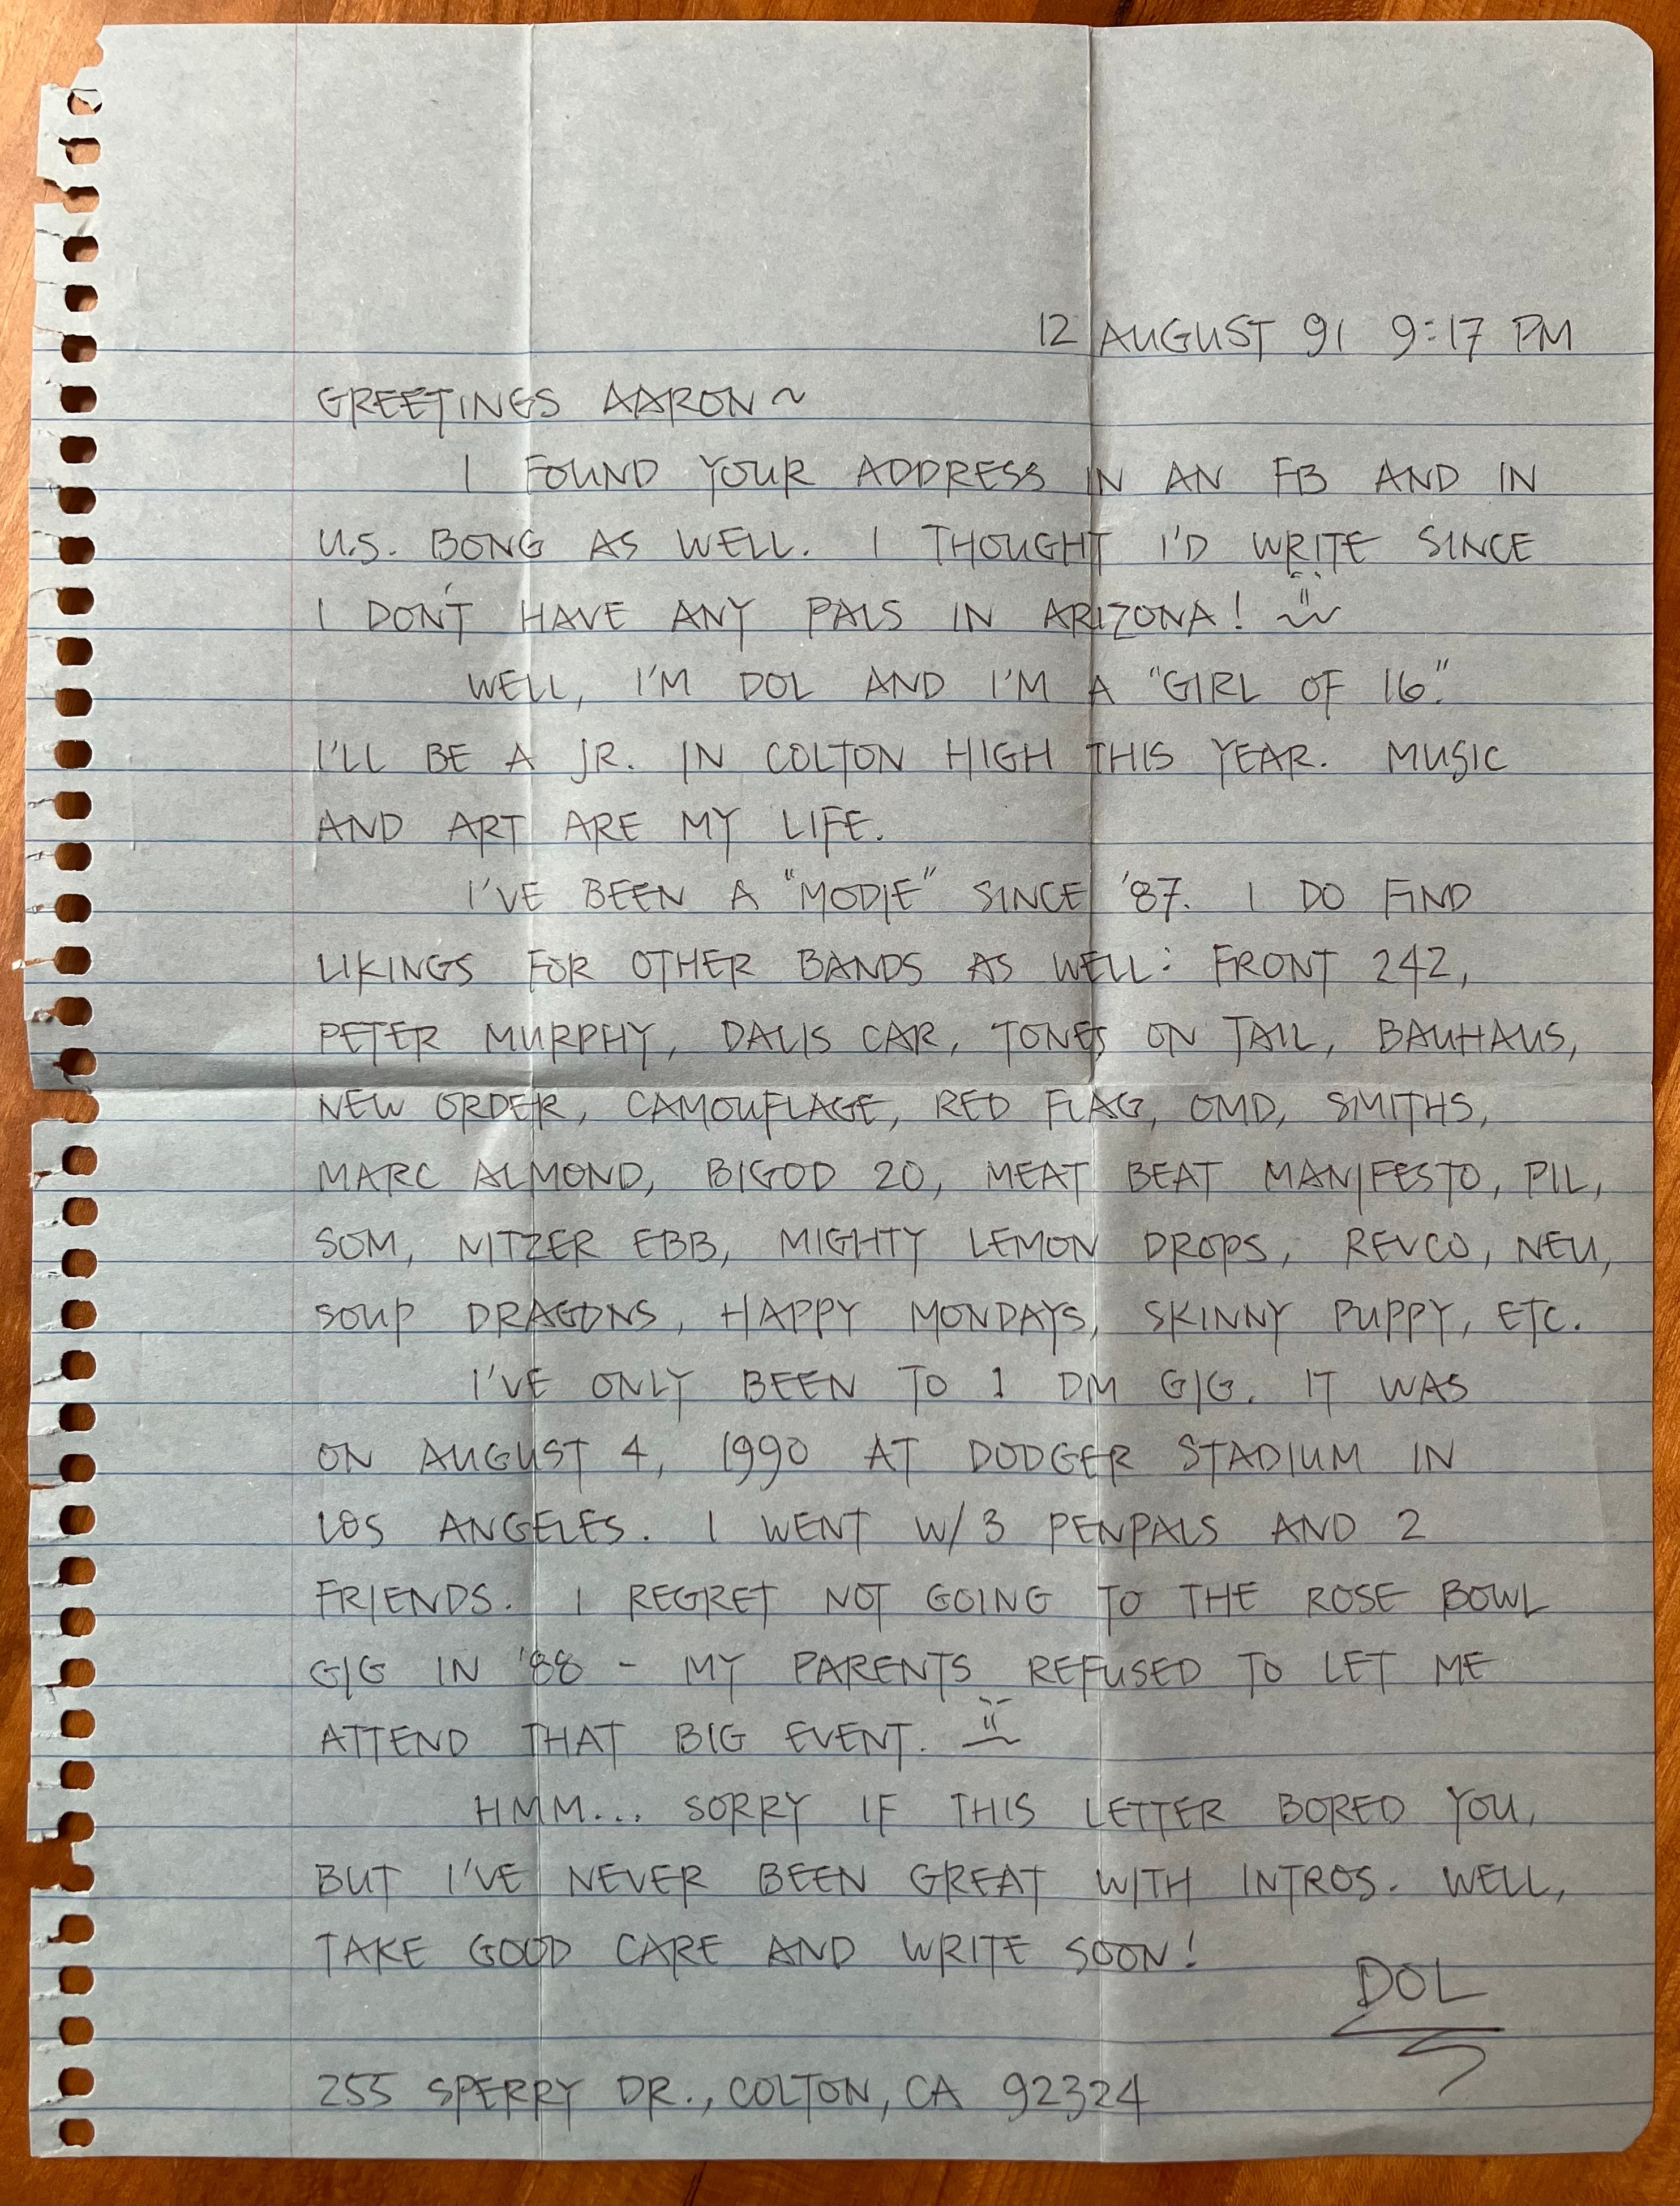 12 AUGUST 91 9:17 PM
GREETINGS AARON~
I FOUND YOUR ADDRESS IN AN FB AND IN
U.S. BONG AS WELL. I THOUGHT I'D WRITE SINCE
I DON'T HAVE ANY PALS IN ARIZONA!
WELL, I'M DOL AND I'M A "GIRL OF 16."
I'LL BE A JR. IN COLTON HIGH THIS YEAR. MUSIC
AND ART ARE MY LIFE.
I'VE BEEN A "MODIE" SINCE '87. I DO FIND
LIKINGS FOR OTHER BANDS AS WELL: FRONT 242,
PETER MURPHY, DALIS CAR, TONES ON TAIL, BAUHAUS,
NEW ORDER, CAMOUFLAGE, RED FLAG, OMD, SMITHS,
MARC ALMOND, BIGOD 20, MEAT BEAT MANIFESTO, PIL,
SOM, NITZER EBB, MIGHTY LEMON DROPS, REVCO, NEU,
SOUP DRAGONS, HAPPY MONDAYS, SKINNY PUPPY, ETC.
I'VE ONLY BEEN TO 1 DM GIG. IT WAS
ON AUGUST 4, 1990 AT DODGER STADIUM IN
LOS ANGELES. I WENT W/3 PENPALS AND 2
FRIENDS. I REGRET NOT GOING TO THE ROSE BOWL
GIG IN '88 - MY PARENTS REFUSED TO LET ME
ATTEND THAT BIG EVENT.
HMM... SORRY IF THIS LETTER BORED YOU,
BUT I'VE NEVER BEEN GREAT WITH INTROS. WELL,
TAKE GOOD CARE AND WRITE SOON!
DOL
255 SPERRY DR., COLTON, CA 92324